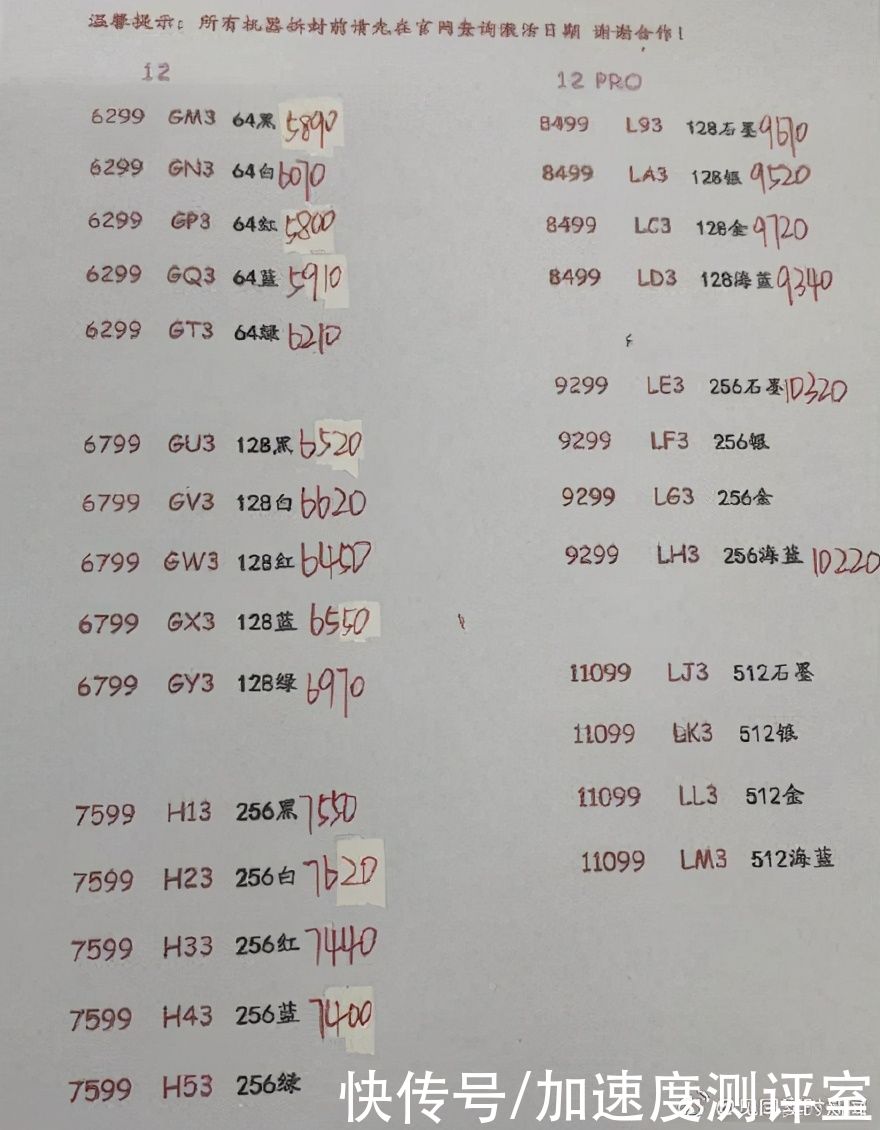 温馨提示：所有机器拆封前请先在官网查询激活日期 谢谢合作！
12
6299 GM3 64黑 5890
6299 GN3 64白 6070
6299 GP3 64红 5800
6299 GQ3 64蓝 5910
6299 GT3 64绿 6210
6799 GU3 128黑 6520
6799 GV3 128白 6620
6799 GW3 128红 6450
6799 GX3 128蓝 6550
6799 GY3 128绿 6970
7599 H13 256黑 7550
7599 H23 256白 7620
7599 H33 256红 7440
7599 H43 256蓝 7400
7599 H53 256绿
12 PRO
8499 L93 128石墨 9670
8499 LA3 128银 9520
8499 LC3 128金 9720
8499 LD3 128海蓝 9340
9299 LE3 256石墨 10320
9299 LF3 256银
9299 LG3 256金
9299 LH3 256海蓝 10220
11099 LJ3 512石墨
11099 LK3 512银
11099 LL3 512金
11099 LM3 512海蓝
快传号/加速度测评室